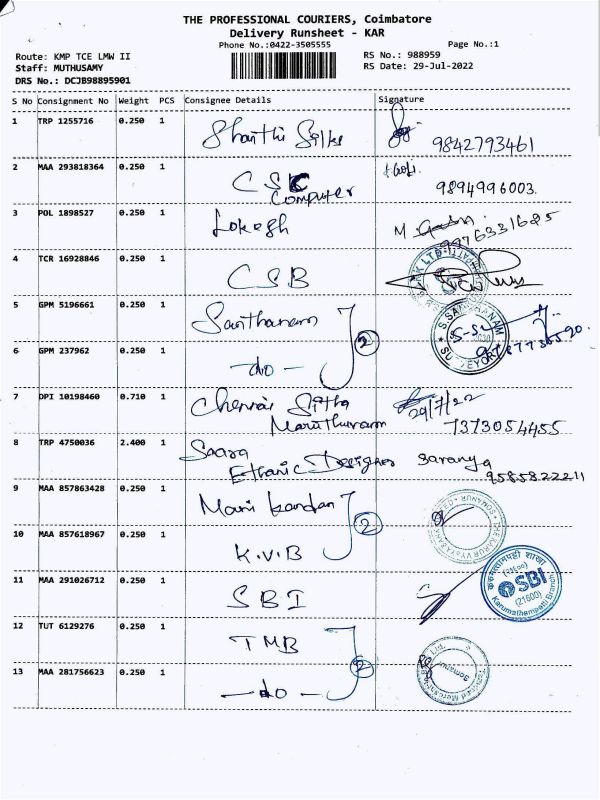 THE PROFESSIONAL COURIERS, Coimbatore
Delivery Runsheet - KAR
Phone No.:0422-3505555 Page No.:1
Route: KMP TCE LMW II RS No.: 988959
Staff: MUTHUSAMY RS Date: 29-Jul-2022
DRS No.: DCJB98895901
S No Consignment No Weight PCS Consignee Details Signature
1 TRP 1255716 0.250 1 Shanthi Silks 9842793461
2 MAA 293818364 0.250 1 CSC Computer 9894996003.
3 POL 1898527 0.250 1 Lokesh M
4 TCR 16928846 0.250 1 CSB
5 GPM 5196661 0.250 1 Santhanam 2 S.SANTHANAM SURVEYOR
6 GPM 237962 0.250 1 -do-
7 DPI 10198460 0.710 1 Chennai Sitha Maruthuvam 29/7/22 7373054455
8 TRP 4750036 2.400 1 Saara Ethanic Designer Saranya 9585822211
9 MAA 857863428 0.250 1 Manikandan 2
10 MAA 857618967 0.250 1 K.V.B
11 MAA 291026712 0.250 1 SBI SBI (21600) Karumathampatti Branch
12 TUT 6129276 0.250 1 TMB 2
13 MAA 281756623 0.250 1 -do- Somanur